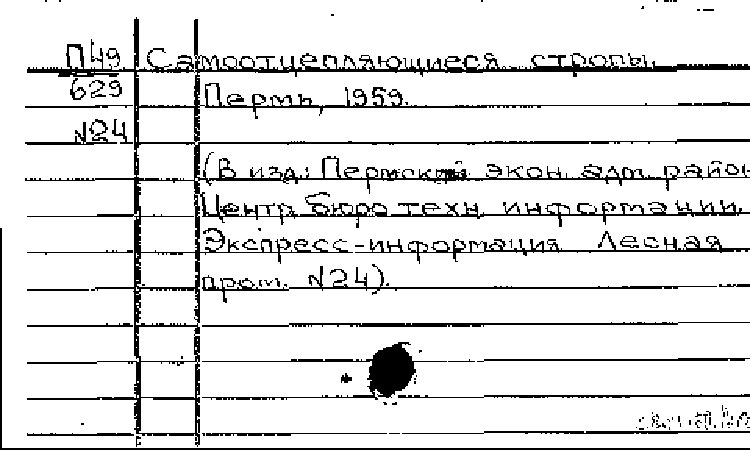 П49 Самоотцепляющиеся стропы.
629 Пермь, 1959.
N24
(В изд.: Пермский экон. адм. район
Центр. бюро техн. информации.
Экспресс-информация Лесная
пром. N24).